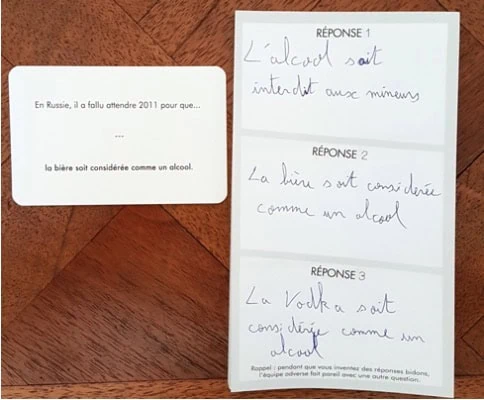 En Russie, il a fallu attendre 2011 pour que...
...
la bière soit considérée comme un alcool.
RÉPONSE 1
L'alcool soit
interdit aux mineurs
RÉPONSE 2
La bière soit considérée
comme un alcool
RÉPONSE 3
La Vodka soit
considérée comme un
alcool
Rappel : pendant que vous inventez des réponses bidons,
l'équipe adverse fait pareil avec une autre question.